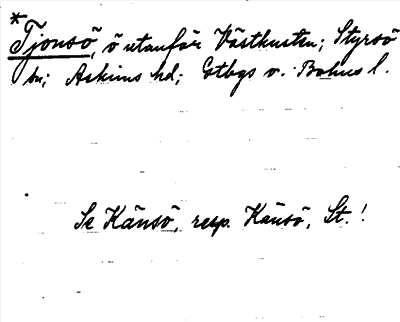 *Tjonsö, ö utanför Västkusten; Styrsö
sn; Askims hd; Gtbgs o. Bohus l.
Se Känsö, resp. Känsö, St.!